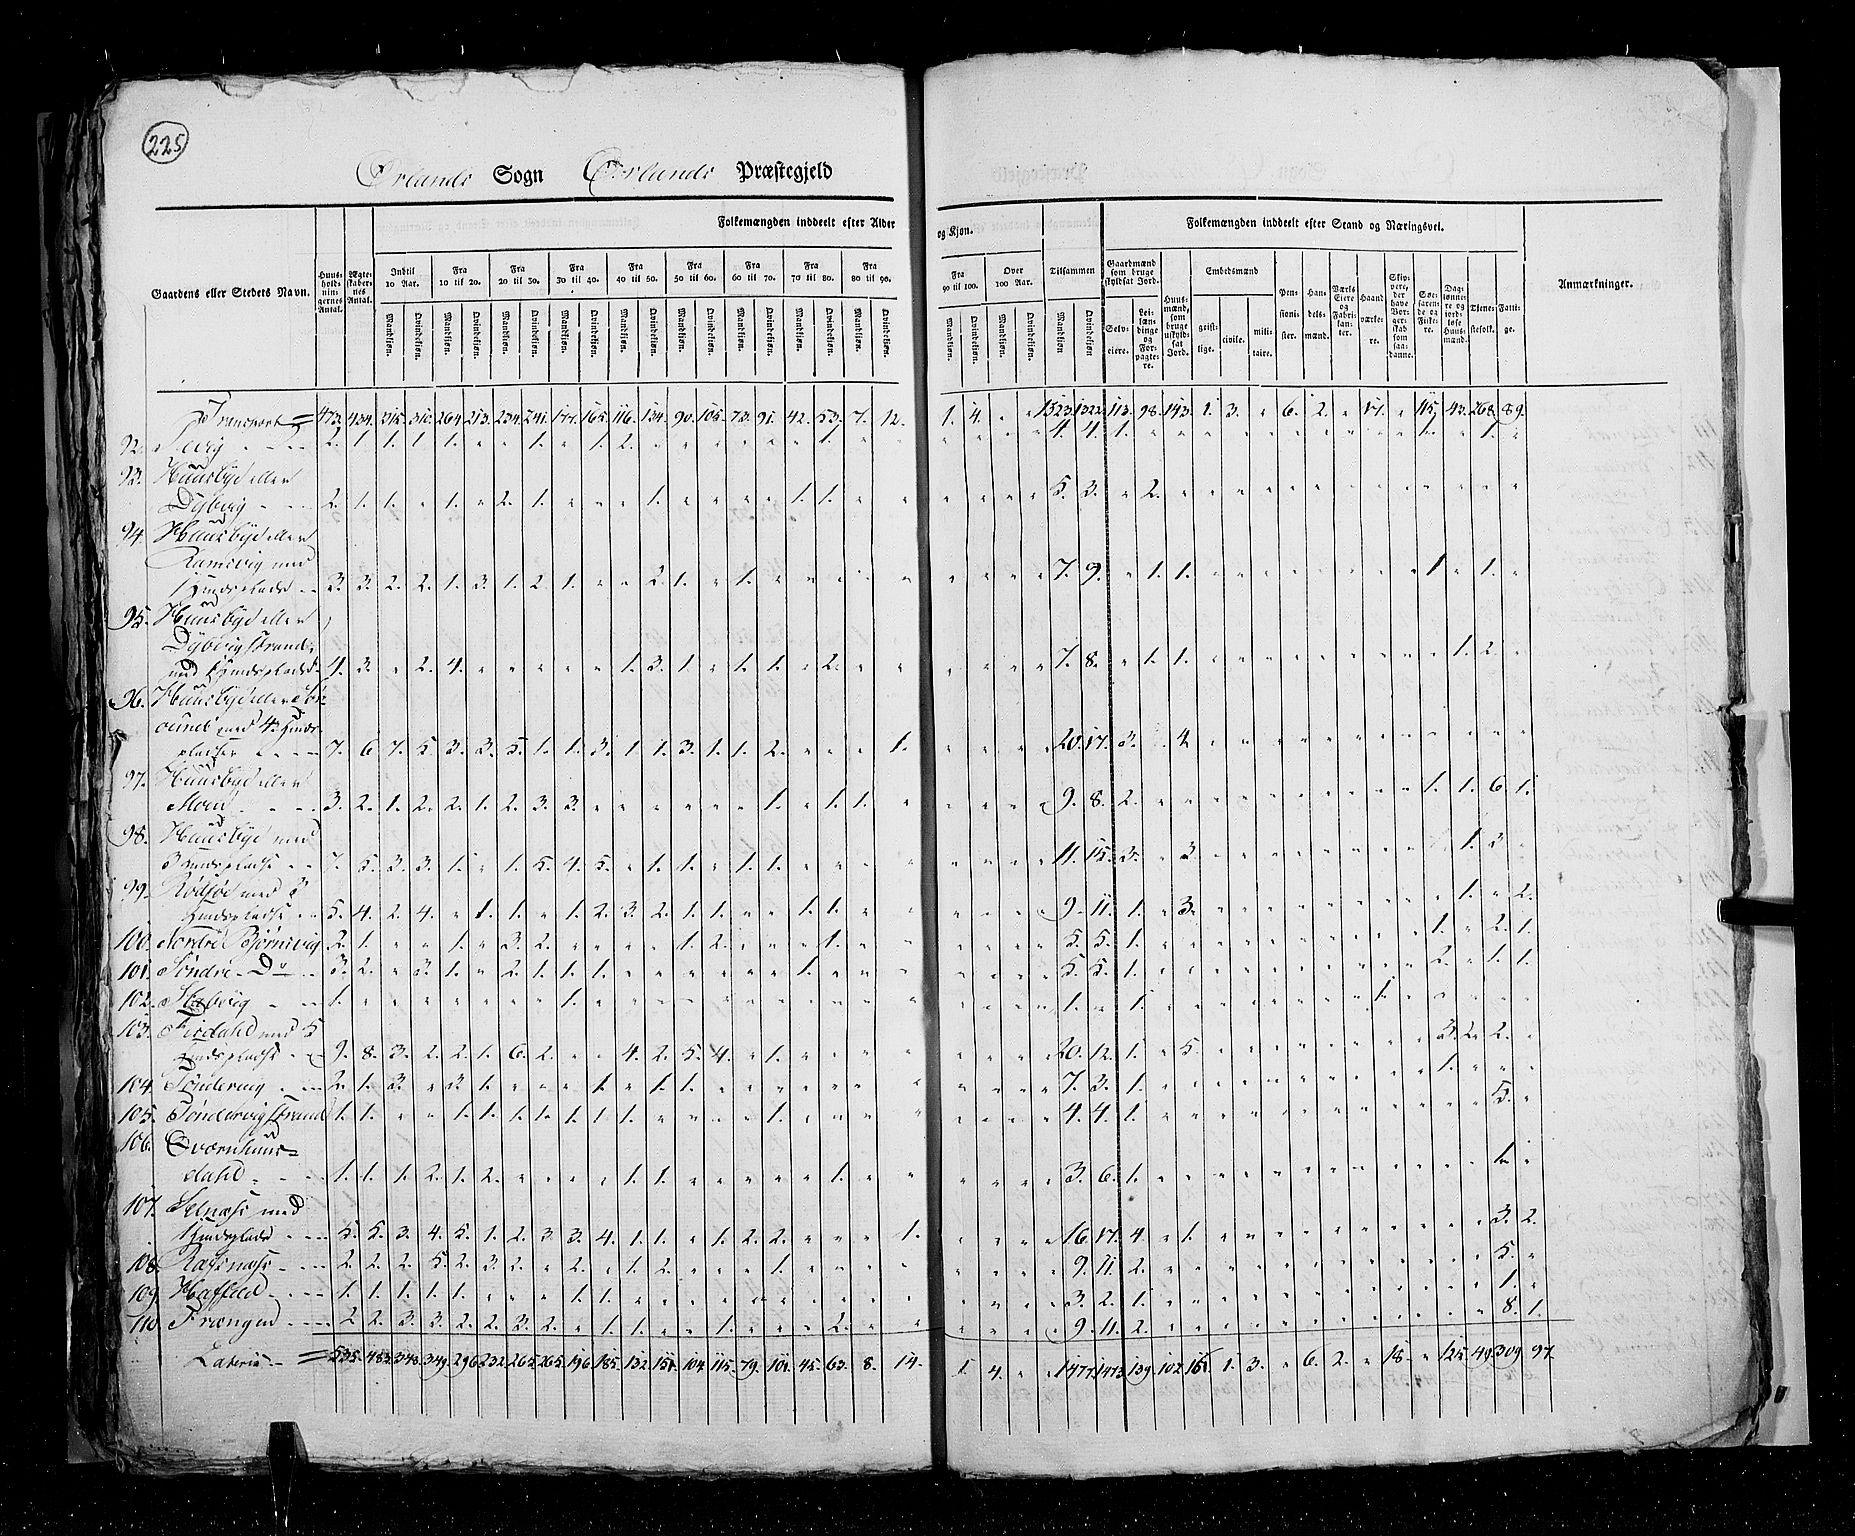 225
Ørlands Sogn Ørlands Præstegjeld
Folkemængden inddeelt efter Alder og Kjøn.
Folkemængden inddeelt efter Stand og Næringsvei.
Gaardens eller Stedets Navn.
Huusholdningernes Antal.
Ægteskabernes Antal.
Indtil 10 Aar.
Fra 10 til 20.
Fra 20 til 30.
Fra 30 til 40.
Fra 40 til 50.
Fra 50 til 60.
Fra 60 til 70.
Fra 70 til 80.
Fra 80 til 90.
Fra 90 til 100.
Over 100 Aar.
Tilsammen
Gaardmænd som bruge skyldsat Jord.
Embedsmænd
Anmærkninger.
Mandkjøn. Qvindekjøn.
Selveiere.
Leilændinge og Forpagtere.
Huusmænd, som bruge uskyldsat Jord.
geistlige. civile. militaire.
Pensionister.
Handelsmænd.
Værks Eiere og Fabrikanter.
Haandværkere.
Skippere, der have Borgerskab som saadanne.
Søefarende og Fiskere.
Daglønnere og jordløse Huusmænd.
Tjenestefolk.
Fattige.
Transport = 473. 434. 315. 316. 264. 213. 234. 241. 177. 165. 116. 134. 90. 105. 73. 91. 42. 53. 7. 12. 1. 4. " " 1323. 1322. 113. 98. 143. 1. 3. " 6. 2. " 17. " 115. 43. 268. 89.
92.
93. Huusbye eller
Dyberg 2. 1. 1. " 1. " 2. 1. " " " 1. " " " " 1. 1. " " " " " " 5. 3. " 2.
94. Huusbye eller
Ramsvig med
Huusplads 3. 3. 2. 2. 1. 3. 1. 2. 1. " " 2. 1. " 1. " " " " " " " " " 7. 9. " 1. 1. " " " " " " " " 1 " 1. "
95. Huusbye eller
Dybergstrand
med Huusplads 4. 3. " 2. 4. " " " " " 1. 3. 1. " 1. 1. " 2. " " " " " " 7. 8. " 1. 1. " " " " " " " " " 1. 2. "
96. Huusbye eller
med 4 Huus-
pladser 7. 6. 7. 5. 3. 3. 5. 1. 1. 3. 1. 1. 3. 1. 1. 2. " " " 1. " " " " 20. 17. 3. " 4.
97. Huusbye eller
Moen 3. 2. 1. 2. 2. 1. 2. 3. 3. " " " " " " 1. " 1. 1. " " " " " 9. 8. 2. " " " " " " " " " " 1. 1. 6. 1.
98. Huusbye med
3 Huuspladse 7. 5. 3. 3. 1. " 1. 5. 4. 5. " 1. 1. " 1. 1. " " " " " " " " 11. 15. 3. " 3. " " " " " " " " " 1. 3. "
99. Rødsøe med 3
Huuspladse 5. 4. 2. 4. " 1. 1. " 1. 2. 3. 2. 1. 1. " " 1. 1. " " " " " " 9. 11. 1. " 3. " " " " " " " " " 1. " 2.
100. Nordre Bjørnevig 2. 1. " " 1. " 3. 2. " " " " 1. 2. " " " 1. " " " " " " 5. 5. 1. " " " " " " " " " " 1. " 2. 1.
101. Søndre Do 3. 2. " 3. 1. " 2. 1. 1. 1. " " " " " " 1. " " " " " " " 5. 5. 1. " " " " " " " " " " 2. " 1. 1.
102. 1. " " " " " " " 1. " " " " " " " " " " " " " " " 1. " " 1. " " " " " " " 1.
103. med 5
Huuspladse 9. 8. 3. 2. 2. 1. 6. 2. " " 4. 2. 5. 4. " 1. " " " " " " " " 20. 12. 1. " 5. " " " " " " " " 3. 2. 2. "
104. Søndervig 2. 1. 3. " 3. 1. " " " 1. " 1. 1. " " " " " " " " " " " 7. 3. 1. " " " " " " " " " " 1.
105. Søndervigstrand 1. 1. " " 1. 1. 1. 1. 1. 1. 1. " " " " 1. " " " " " " " " 4. 4. 1. 5.
106. Sværnhuus=
dahl 1. 1. 1. 2. 1. 2. " " " " 1. 1. " " " " " 1. " " " " " " 3. 6. 1. 1.
107. Selnæss med
Huusplads 5. 5. 3. 4. 5. 1. 2. 3. 3. 4. 1. 1. " 1. 2. 2. " " " 1. " " " " 16. 17. 4. " 1. 3. 2.
108. 2. 2. 2. 5. 2. 3. 2. " 2. " 1. 2. " " " 1. " " " " " " " " 9. 11. 2. 5. "
109. Haffeld 1. 1. 1. 1. 1. " " " 1. 1. " " " " " " " " " " " " " " 3. 2. 1. 1. "
110. 2. 2. 3. 3. 2. 2. 3. 2. " 1. 1. " " 1. " " " 2. " " " " " " 9. 11. 2. 8. 1.
Lateris = 535. 483. 348. 349. 296. 232. 265. 265. 196. 185. 132. 151. 104. 115. 79. 101. 45. 63. 8. 14. 1. 4. " " 1477. 1473. 139. 102. 161. 1. 3. " 6. 2. " 18. " 125. 49. 309. 97.